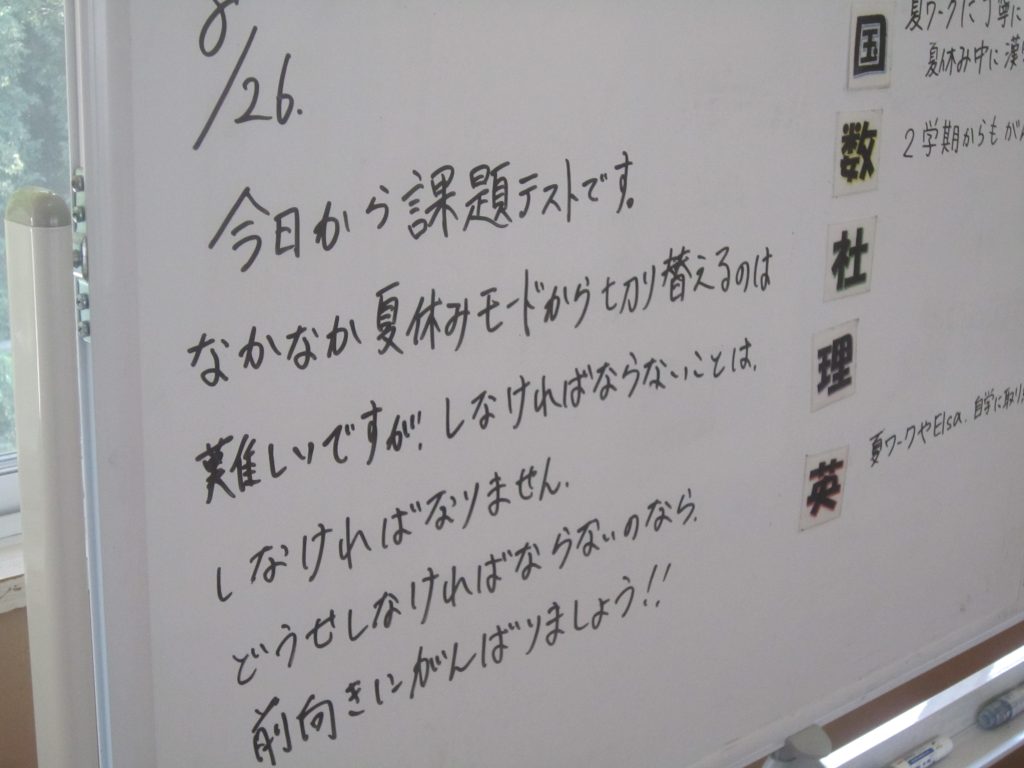 8/26.
今日から課題テストです。
なかなか夏休みモードから切り替えるのは
難しいですが、しなければならないことは、
しなければなりません。
どうせしなければならないのなら、
前向きにがんばりましょう!!
国
夏ワークに丁寧に
夏休み中に漢
数
2学期からもがん
社
理
英
夏ワークやElsa、自学に取り